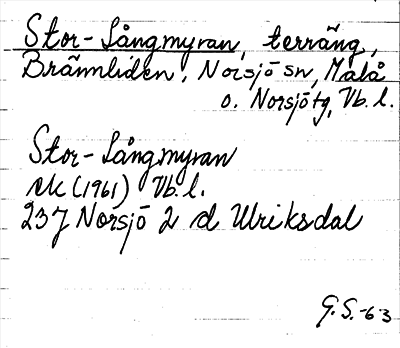 Stor-Långmyran, terräng,
Brännliden, Norsjö sn, Malå
o. Norsjö tg, Vb. l.
Stor-Långmyran
rek (1961) Vb. l.
23J Norsjö 2 d Ulriksdal
G. S. -63